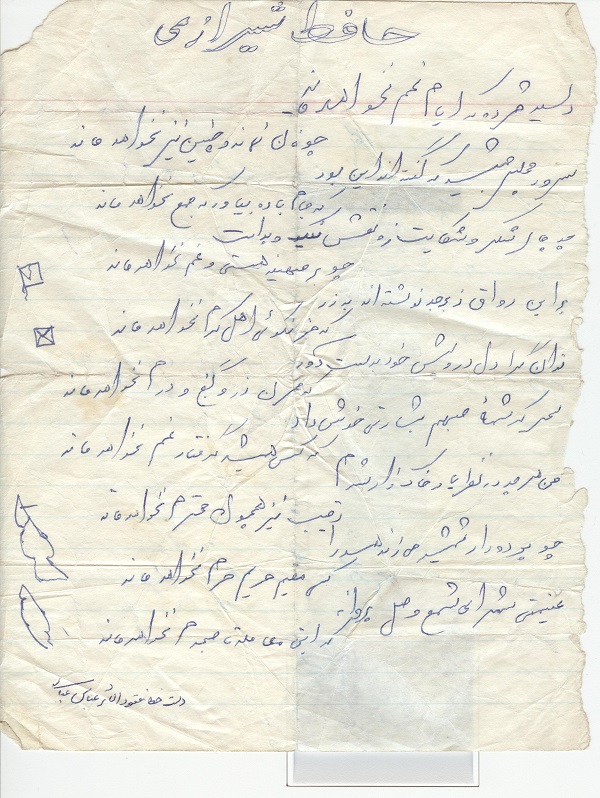 حافظ شیرازی
رسید مژده که ایام غم نخواهد ماند
چونان نماند و چنین نیز نخواهد ماند
سرود مجلس جمشید که گفته‌اند این بود
که جام باده بیاور که جم نخواهد ماند
چه جای شکر و شکایت ز نقش نیک و بد است
چو بر صحیفه هستی رقم نخواهد ماند
بر این رواق زبرجد نوشته‌اند به زر
که جز نکوئی اهل کرم نخواهد ماند
توانگرا دل درویش خود بدست آور
که مخزن زر و گنج و درم نخواهد ماند
سحر کرشمهٔ صبحم بشارتی خوش داد
که کس همیشه گرفتار غم نخواهد ماند
من ار چه در نظر یار خاکسار شدم
رقیب نیز همچون محترم نخواهد ماند
چو پرده‌دار شمشیر می‌زند همه را
کسی مقیم حریم حرم نخواهد ماند
غنیمتی شمر ای شمع وصل پروانه
که این معامله تا صبحدم نخواهد ماند
دست خط عباس